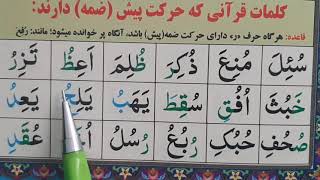 کلمات قرآنی که حرکت پیش (ضمه) دارند:
قاعده: هرگاه حرف «ر» دارای حرکت ضمه(پیش) باشد، آنگاه پر خوانده میشود؛ مانند: رُفِعَ
سُئِلَ مُنِعَ ذُکِرَ ظُلِمَ اَعِظُ تَزِرُ
خَبُثَ اُفُقِ سُقِطَ یَهَبُ یَلِجُ یَعِدُ
صُحُفِ حُبُکِ رُبُعُ رُسُلُ عُقَدِ